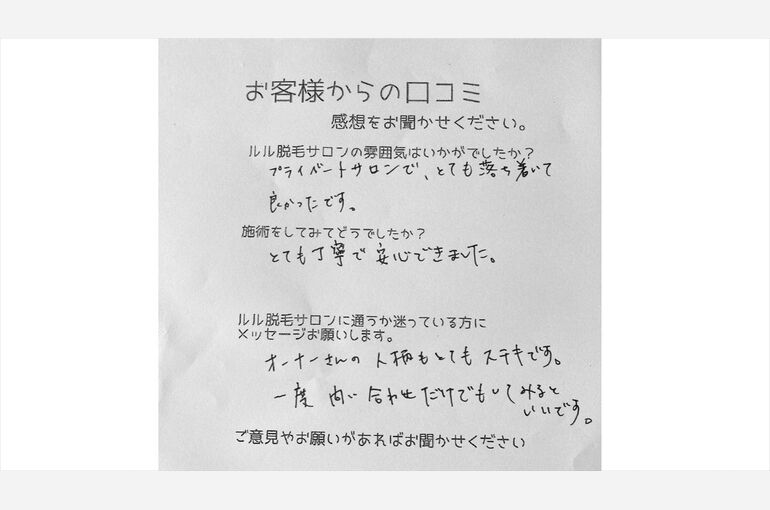 お客様からの口コミ
感想をお聞かせください。
ルル脱毛サロンの雰囲気はいかがでしたか？
プライバートサロンで、とても落ち着いて
良かったです。
施術をしてみてどうでしたか？
とても丁寧で安心できました。
ルル脱毛サロンに通うか迷っている方に
メッセージお願いします。
オーナーさんの人柄もとてもステキです。
一度 問い合わせだけでもしてみると
いいです。
ご意見やお願いがあればお聞かせください